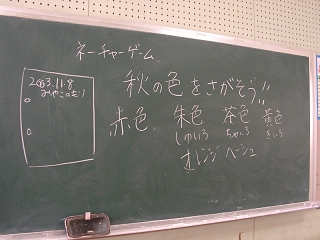 ネーチャーゲーム
2003.11.8
みやこのもり
秋の色をさがそう!!
赤色 朱色 茶色 黄色
しゅいろ ちゃいろ きいろ
オレンジ ベージュ